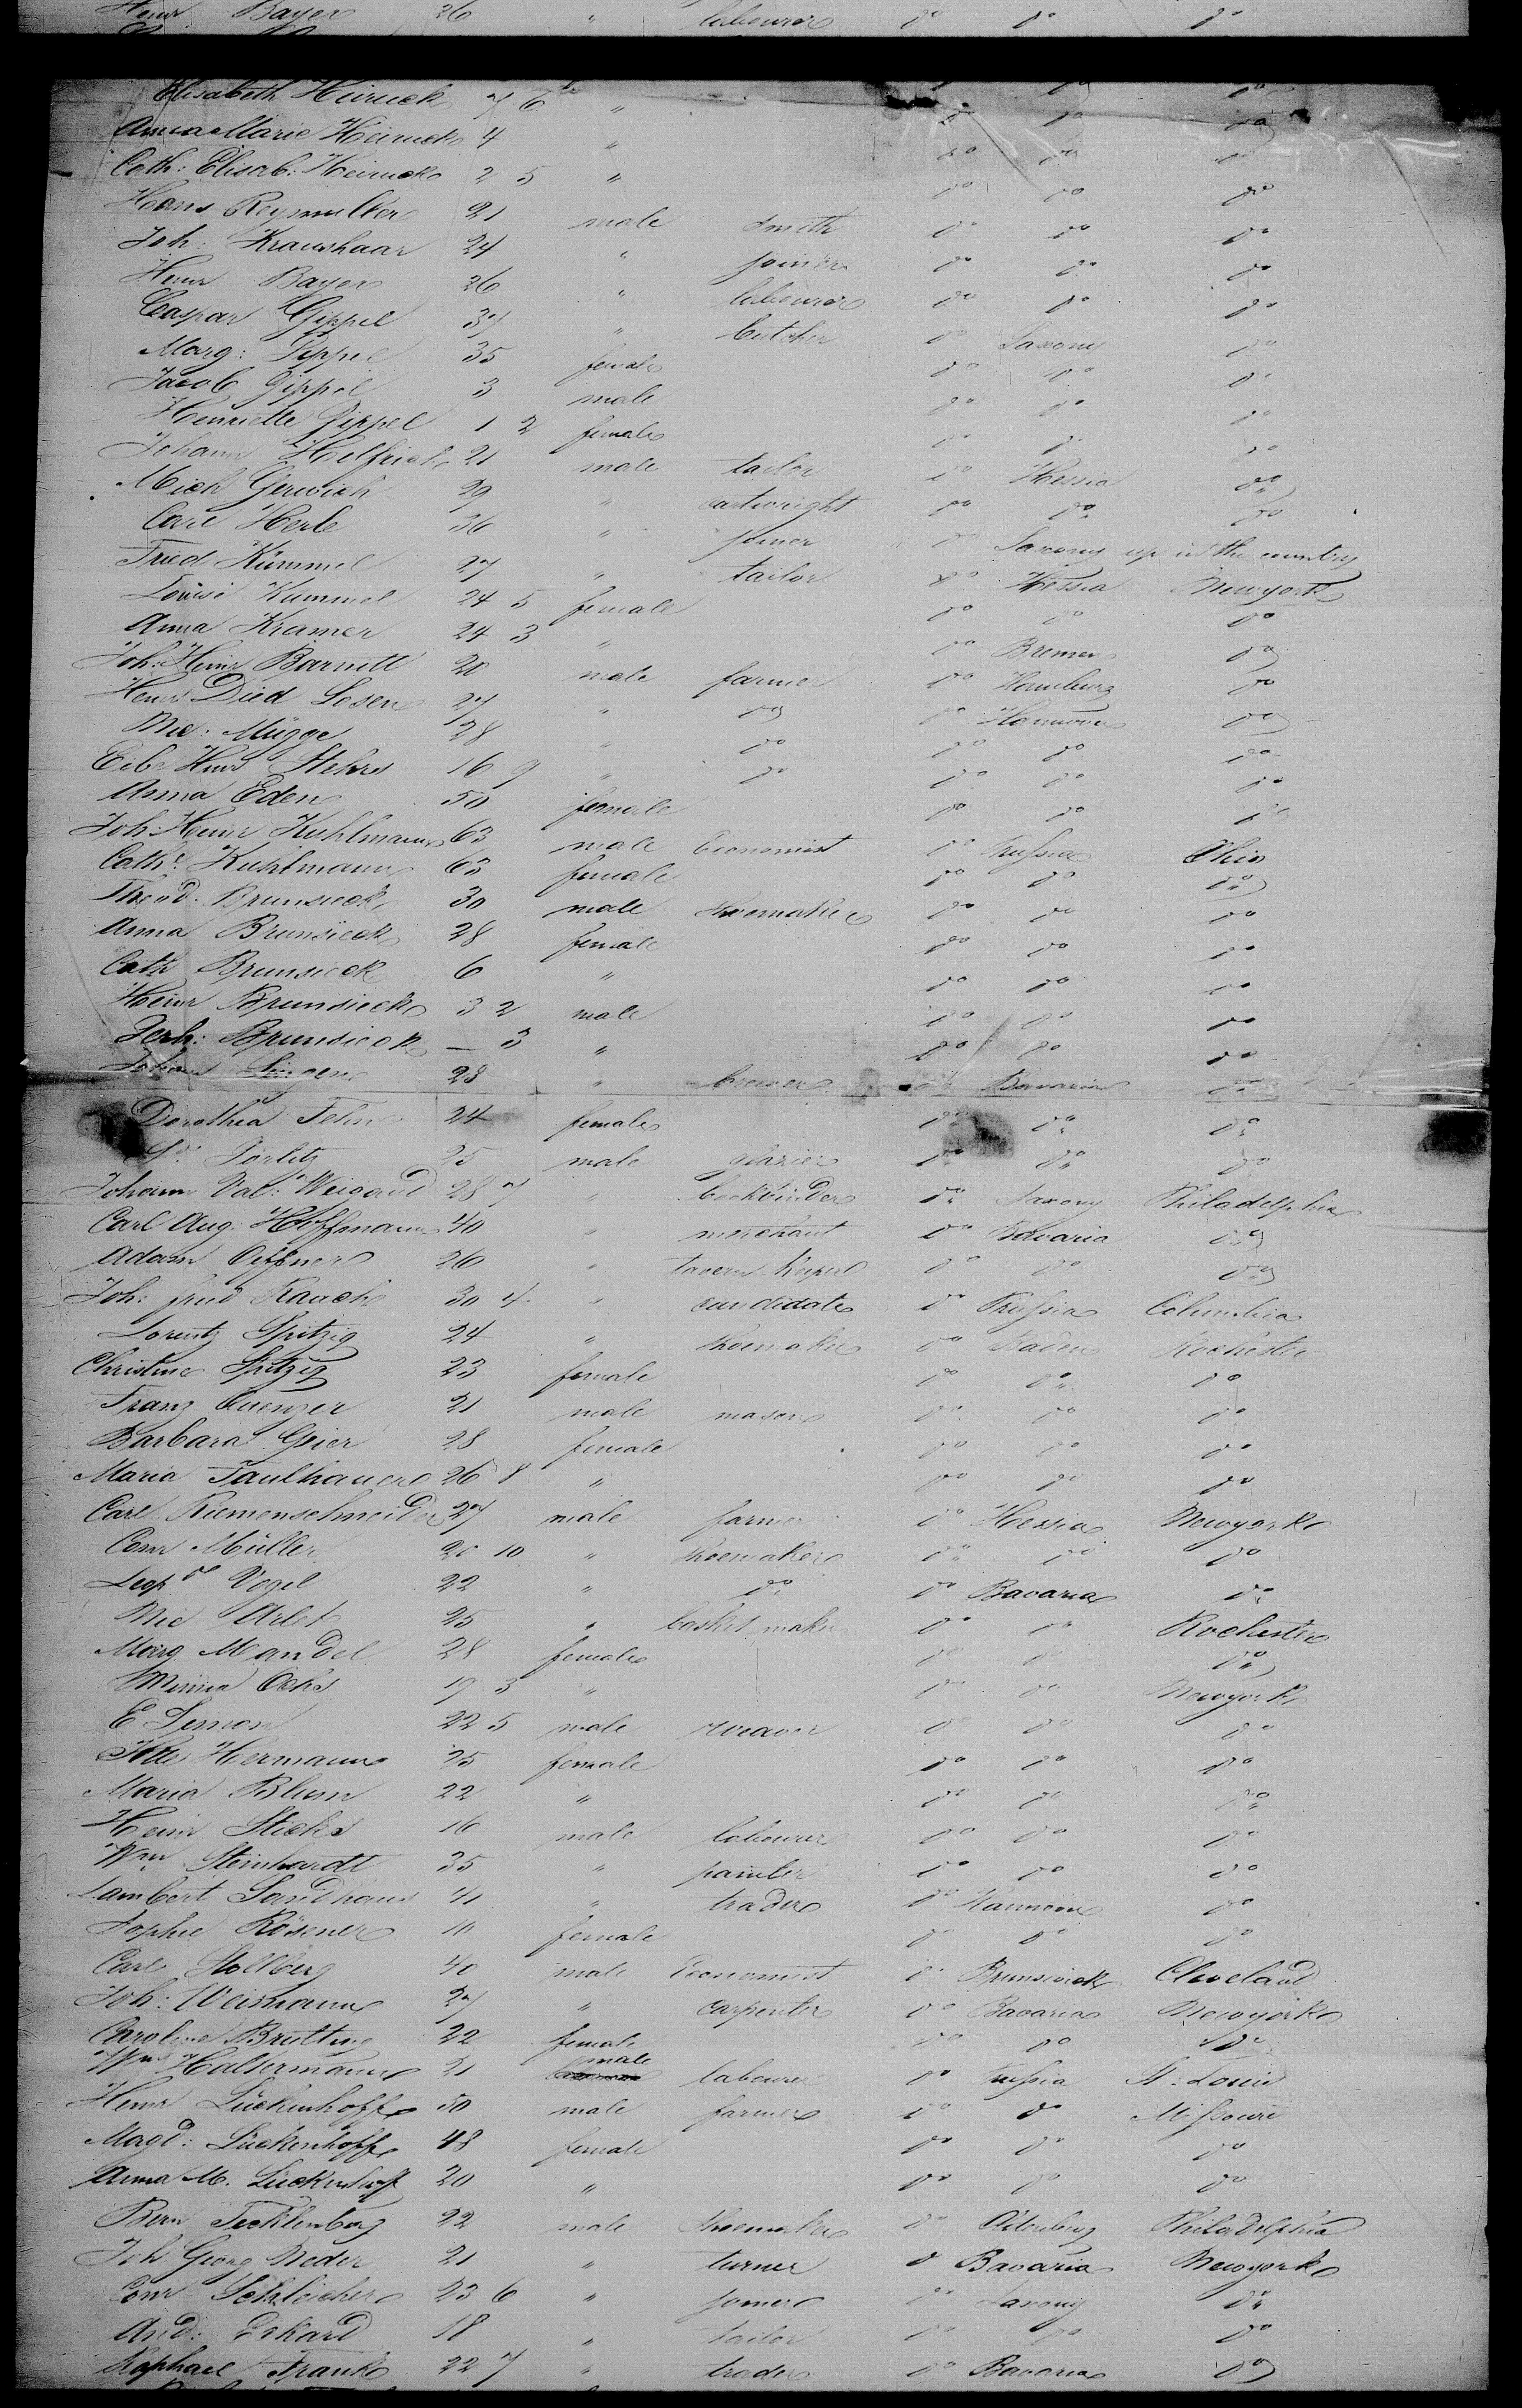 Heinr Bayer 26 " labourer do do do
Elisabeth Heinuck 7 6 " do do
Anna Marie Heinuck 4 " do do do
Cath: Elisab: Heinuck 2 5 " do do do
Hans Reymuller 21 male smith do do do
Joh: Kraushaar 24 " joiner do do do
Heinr Bayer 26 " labourer do do do
Caspar Gippel 37 " butcher do Saxony do
Marg: Gippel 35 female do do do
Jacob Gippel 3 male do do do
Henriette Gippel 1 2 female do do do
Johann Helfrich 21 male tailor do Hessia do
Mich Gerwich 29 " cartwright do do do
Carl Herle 36 " joiner " do Saxony up in the country
Fried Kümmel 27 " tailor do Hessia Newyork
Louise Kümmel 24 5 female do do do
Anna Kramer 24 3 " do Bremen do
Joh: Heinr Barnett 20 male farmer do Hamburg do
Heinr Died Losen 27 " do do Hannover do
Nic: Mügge 28 " do do do do
Heinr Stehrs 16 9 " do do do do
Anna Eden 50 female do do do
Joh: Heinr Kuhlmann 63 male Economist do Prussia Ohio
Cath: Kuhlmann 63 female do do do
Theod. Brunsieck 30 male shoemaker do do do
Anna Brunsieck 28 female do do do
Cath Brunsieck 6 " do do do
Heinr Brunsieck 3 2 male do do do
Ferh: Brunsieck — 3 " do do do
Johann 28 " brewer do Bavaria do
Dorothea Fehn 24 female do do do
Görlitz 25 male glazier do do do
Johann Val: Weigand 28 7 " bookbinder do Saxony Philadelphia
Carl Aug: Hoffmann 40 " merchant do Bavaria do
Adam Oeffner 26 " tavern keeper do do do
Joh: fried Rauch 30 4 " candidate do Prussia Columbia
Lorentz Spitzig 24 " shoemaker do Baden Rochester
Christine Spitzig 23 female do do do
Franz Cuenzer 21 male mason do do do
Barbara Geier 28 female do do do
Maria Faulhauer 26 8 " do do do
Carl Riemenschneider 27 male farmer do Hessia Newyork
Conr Müller 20 10 " shoemaker do do do
Leopd Vogel 22 " do do Bavaria do
Nic Arlet 25 " basket maker do do Rochester
Marg Mandel 28 female do do do
Minna Ochs 19 3 " do do Newyork
E Simon 22 5 male weaver do do do
Hermann 25 female do do do
Maria Blum 22 " do do do
Heinr Sticks 16 male labourer do do do
Wm Steinhardt 35 " painter do do do
Lambert Landhaus 41 " trader do Hannover do
Sophie Rösener 10 female do do do
Carl Stollberg 40 male Economist do Brunswick Cleveland
Joh: Weismann 27 " carpenter do Bavaria Newyork
Caroline Brutting 22 female do do do
Wm Haltermann 21 male labourer do Prussia St: Louis
Heinr Lückenhoff 50 male farmer do do Missouri
Magd: Lückenhoff 48 female do do do
Anna M. Lückenhoff 20 " do do do
Bern Tecklenborg 22 male shoemaker do Oldenburg Philadelphia
Joh Georg Neder 21 " turner do Bavaria Newyork
Conr Schleicher 23 6 " joiner do Saxony do
And: Eckard 18 " tailor do do do
Raphael Frank 22 7 " trader do Bavaria do